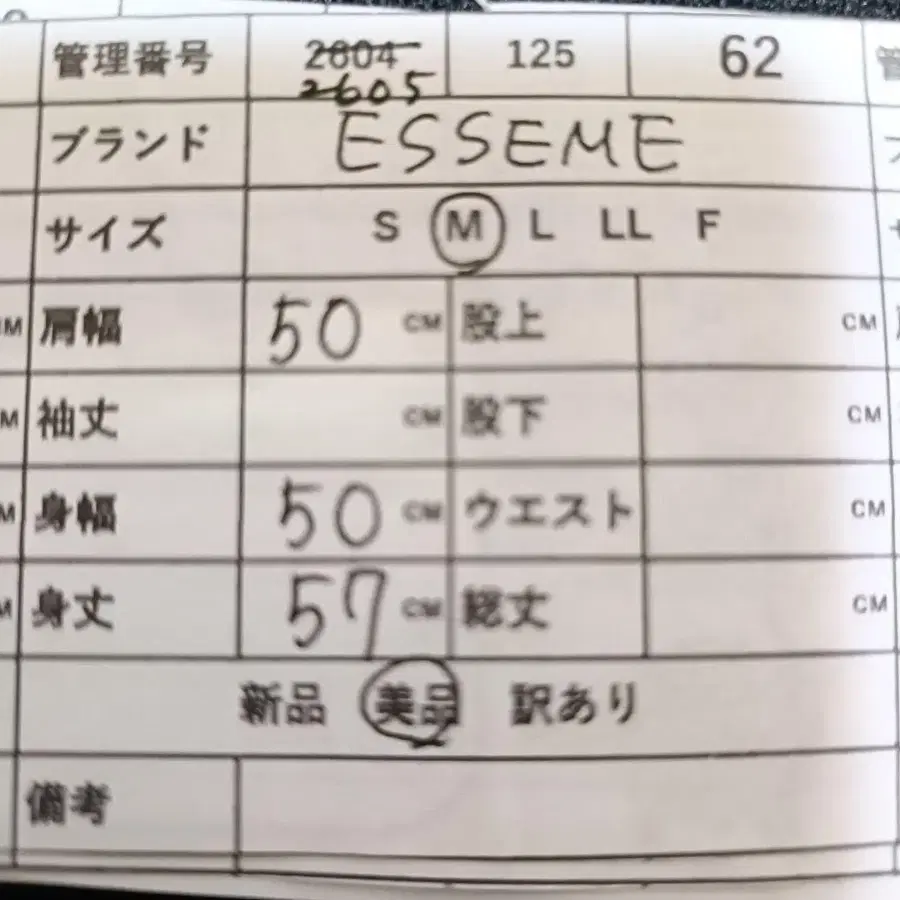 管理番号 2604 125 62
2605
ブランド ESSEME
サイズ S M L LL F
CM 肩幅 50 CM 股上 CM
CM 袖丈 CM 股下 CM
CM 身幅 50 CM ウエスト CM
CM 身丈 57 CM 総丈 CM
新品 美品 訳あり
備考